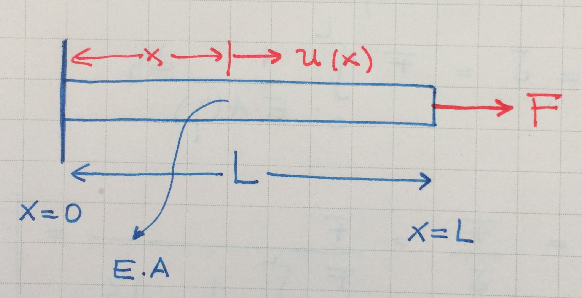 x u(x)
F
L
x=0
x=L
E.A